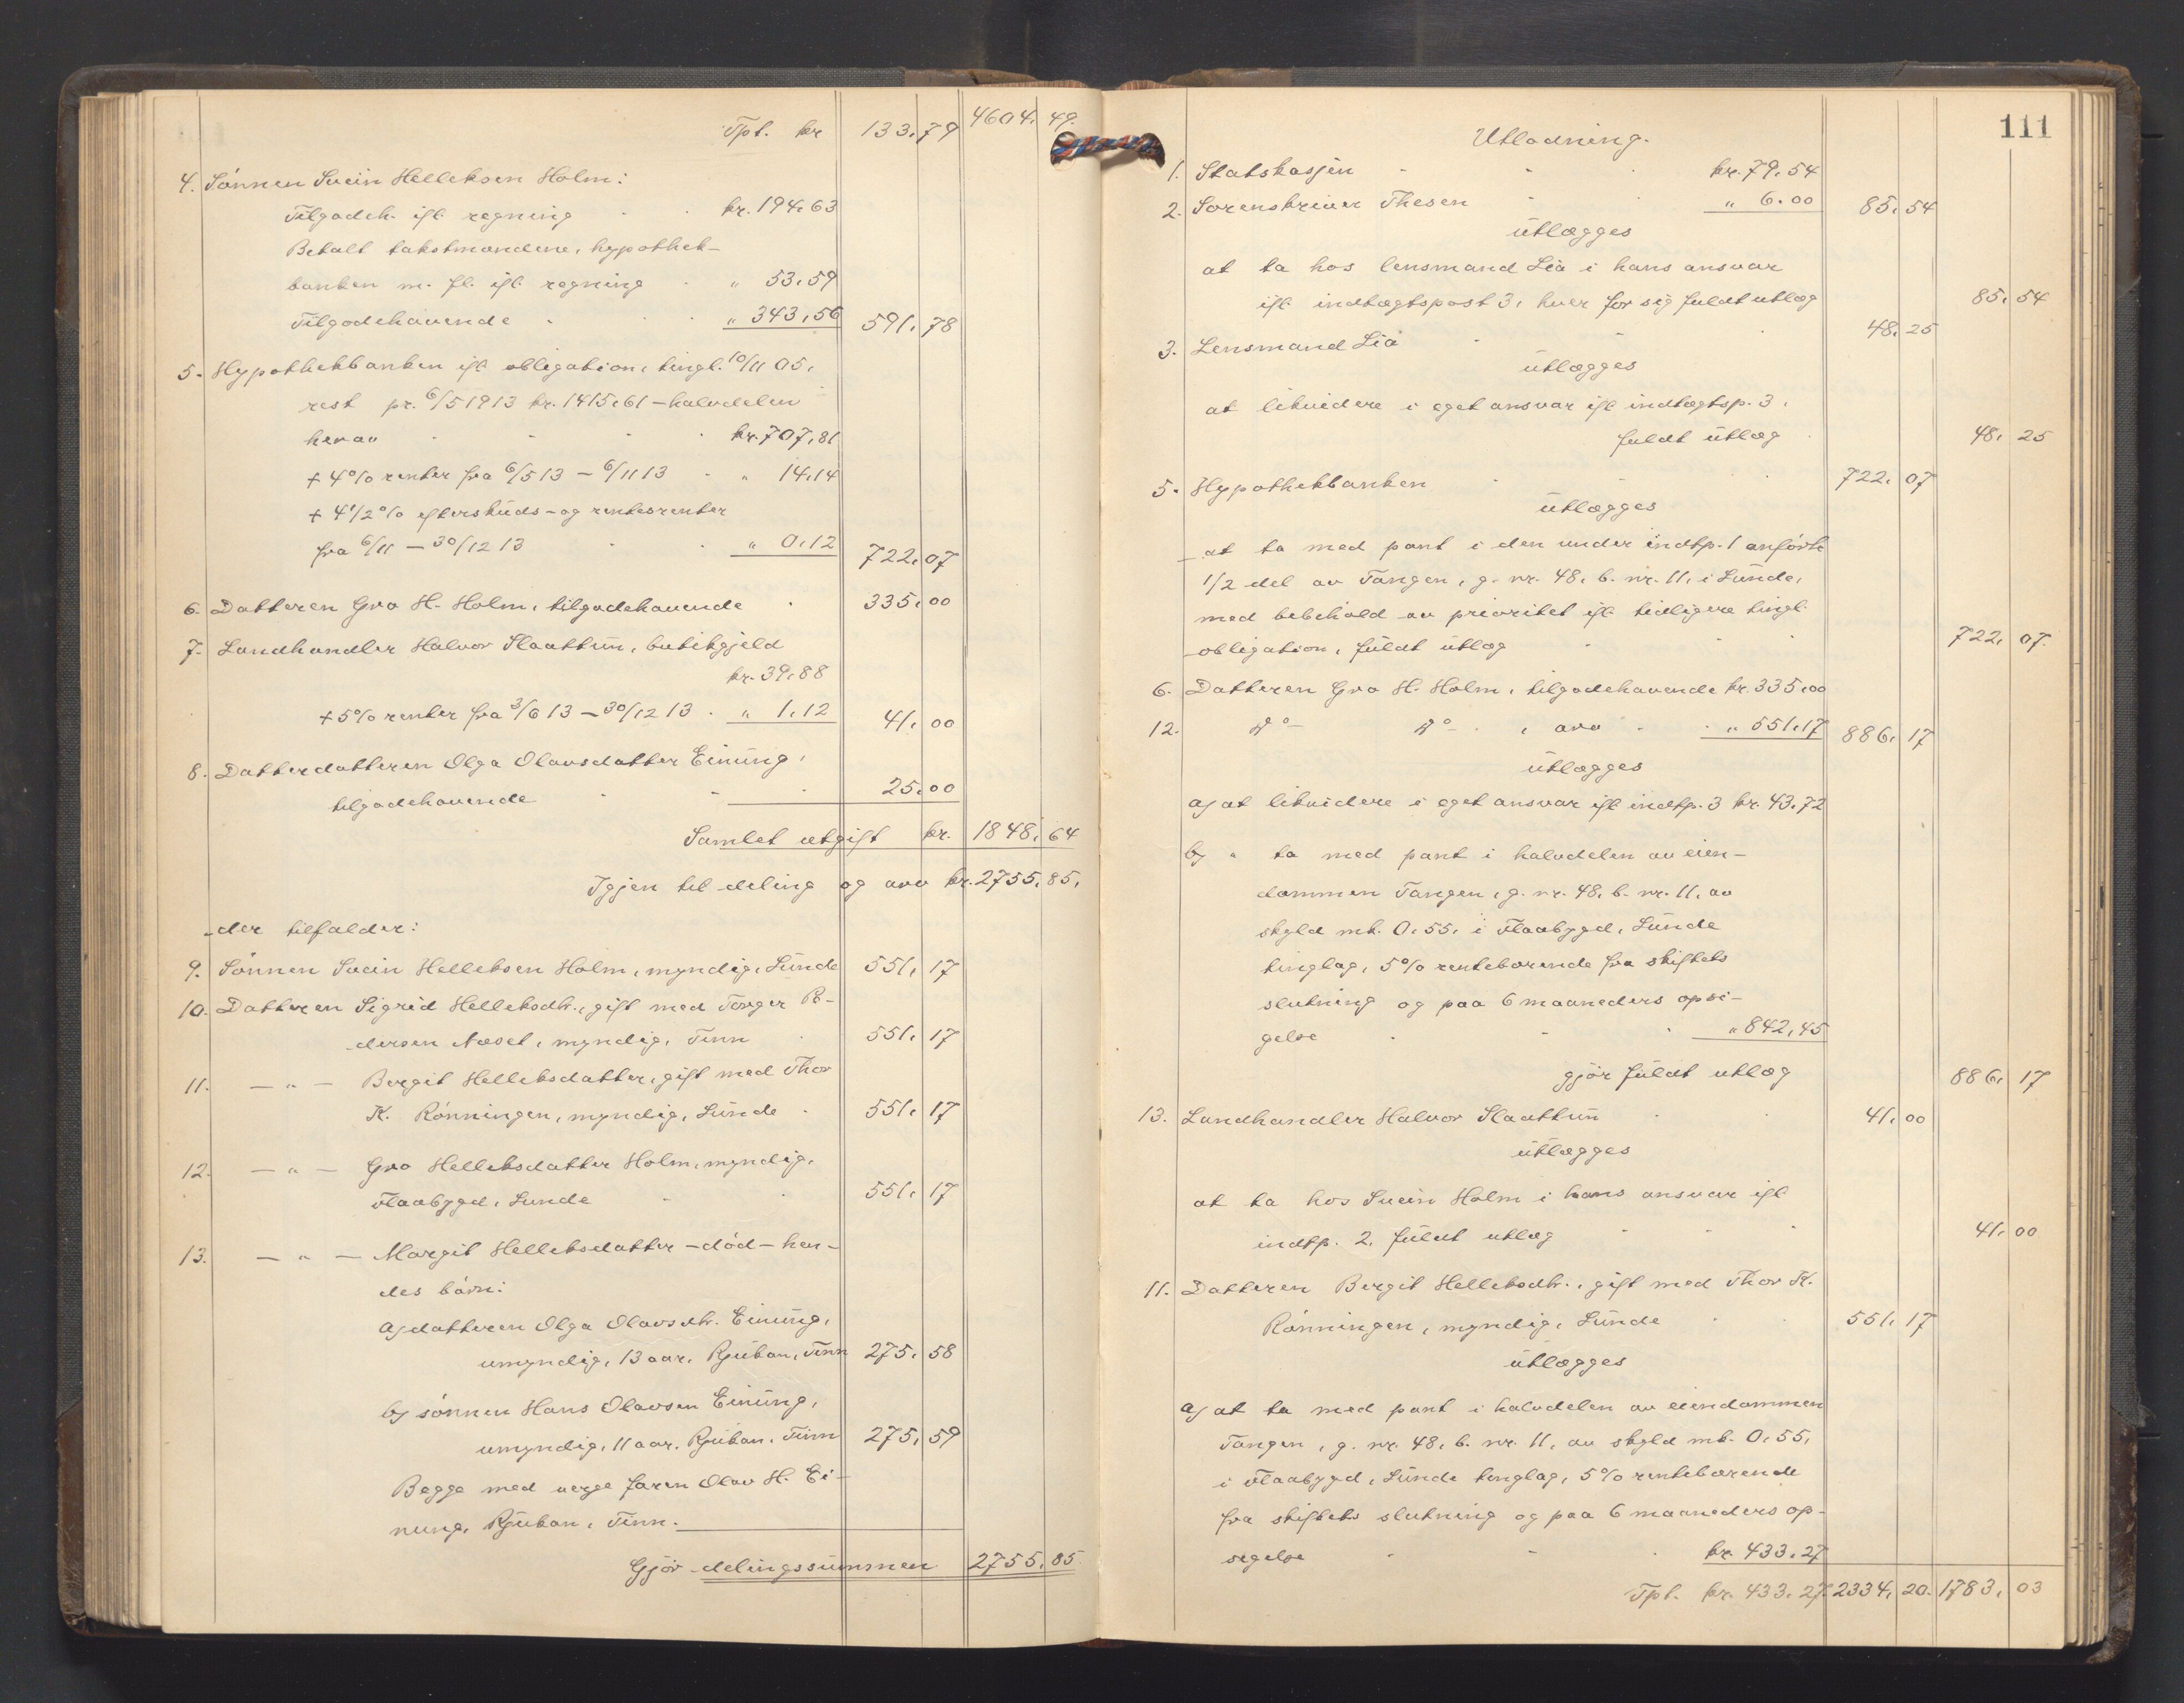 Tpt. kr 133,79 4604,49.
4. Sönnen Svein Helleksen Holm:
Tilgodeh. ifl. regning kr. 194,63
Betalt takstmændene, hypothek-
banken m. fl. ifl. regning " 53,59
Tilgodehavende " 343,56 591,78
5. Hypothekbanken ifl. obligation, tingl. 10/11 05,
rest pr. 6/5 1913 kr. 1415,61 - halvdelen
herav kr. 707,81
+ 4% renter fra 6/5 13 - 6/11 13 " 14,14
+ 4 1/2 % efterskuds- og rentesrenter
fra 6/11 - 30/12 13 " 0,12 722,07
6. Datteren Gro H. Holm, tilgodehavende 335,00
7. Landhandler Halvor Slaattun, butikgjeld
kr. 39,88
+ 5% renter fra 3/6 13 - 30/12 13 " 1,12 41,00
8. Datterdatteren Olga Olavsdatter Einung,
tilgodehavende 25,00
Samlet utgift kr. 1848,64
Igjen til deling og arv kr. 2755,85,
der tilfalder:
9. Sönnen Svein Helleksen Holm, myndig, Lunde 551,17
10. Datteren Sigrid Helleksdtr., gift med Torger Pe-
dersen Næset, myndig, Tinn 551,17
11. - " - Bergit Helleksdatter, gift med Thor
K. Rönningen, myndig, Lunde 551,17
12. - " - Gro Helleksdatter Holm, myndig,
Flaabygd, Lunde 551,17
13. - " - Margit Helleksdatter - död - hen-
des börn:
a) datteren Olga Olavsdtr. Einung,
umyndig, 13 aar, Rjukan, Tinn 275,58
b) sönnen Hans Olavsen Einung,
umyndig, 11 aar, Rjukan, Tinn 275,59
Begge med verge faren Olav H. Ei-
nung, Rjukan, Tinn.
Gjör delingssummen 2755,85
111
Utlodning.
1. Statskassen kr. 79,54
2. Sorenskriver Thesen " 6.00 85,54
utlægges
at ta hos lensmand Lia i hans ansvar
ifl. indtægtspost 3, hver for sig fuldt utlæg 85,54
3. Lensmand Lia 48,25
utlægges
at likvidere i eget ansvar ifl. indtægtsp. 3,
fuldt utlæg 48,25
5. Hypothekbanken 722,07
utlægges
at ta med pant i den under indtp. 1 anförte
1/2 del av Tangen, g. nr. 48, b. nr. 11, i Lunde,
med bebehold av prioritet ifl. tidligere tingl.
obligation, fuldt utlæg 722,07.
6. Datteren Gro H. Holm, tilgodehavende kr. 335,00
12. do do , arv " 551,17 886,17
utlægges
a) at likvidere i eget ansvar ifl. indtp. 3 kr. 43,72
b) " ta med pant i halvdelen av eien-
dommen Tangen, g. nr. 48, b. nr. 11, av
skyld mk. 0,55, i Flaabygd, Lunde
tinglag, 5% rentebærende fra skiftets
slutning og paa 6 maaneders opsi-
gelse " 842,45
gjör fuldt utlæg 886,17
13. Landhandler Halvor Slaattun 41,00
utlægges
at ta hos Svein Holm i hans ansvar ifl.
indtp. 2, fuldt utlæg 41,00
11. Datteren Bergit Helleksdtr., gift med Thor K.
Rönningen, myndig, Lunde 551,17
utlægges
a) at ta med pant i halvdelen av eiendommen
Tangen, g. nr. 48, b. nr. 11, av skyld mk. 0,55,
i Flaabygd, Lunde tinglag, 5% rentebærende
fra skiftets slutning og paa 6 maaneders op-
sigelse kr. 433,27
Tpt. kr. 433,27. 2334,20. 1783,03